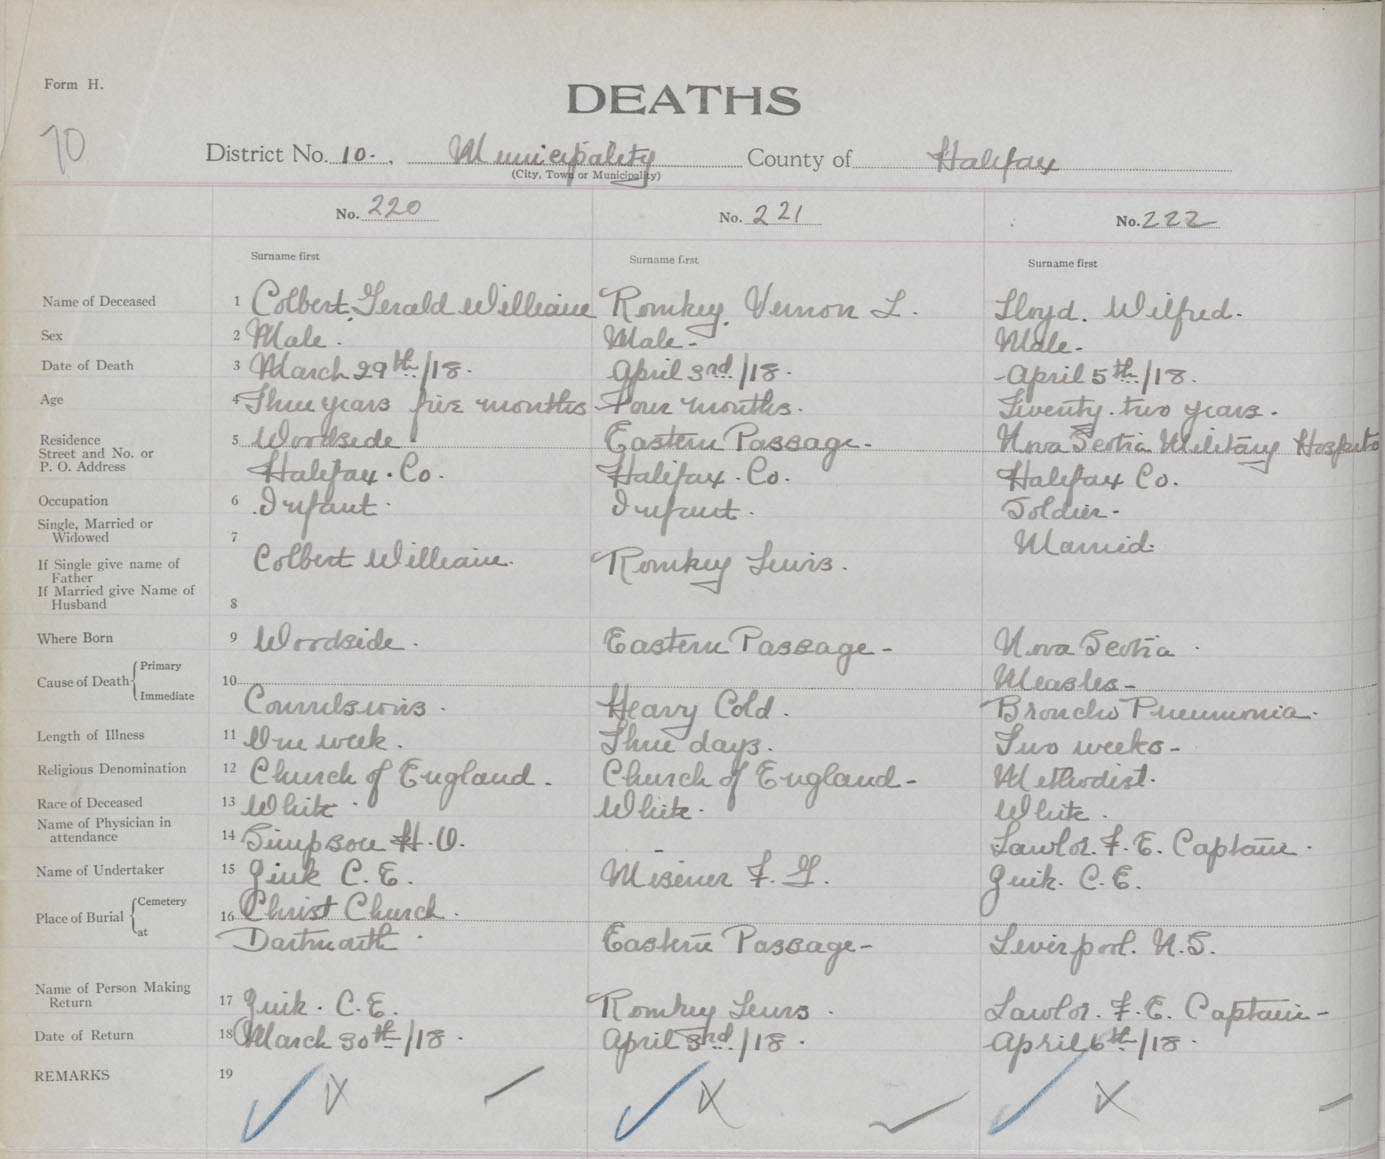 Form H.
DEATHS
70
District No. 10. , Municipality County of Halifax
(City, Town or Municipality)
No. 220 No. 221 No. 222
Surname first Surname first Surname first
Name of Deceased 1 Colbert, Gerald William Romkey, Vernon L. Lloyd. Wilfred.
Sex 2 Male. Male - Male -
Date of Death 3 March 29th/18. April 3rd/18. April 5th/18.
Age 4 Three years five months Four months. Twenty. two years.
Residence 5 Woodside Eastern Passage - Nova Scotia Military Hospital
Street and No. or
P. O. Address Halifax. Co. Halifax. Co. Halifax Co.
Occupation 6 Infant. Infant. Soldier -
Single, Married or
Widowed 7 Married.
If Single give name of Colbert William. Romkey Lewis.
Father
If Married give Name of
Husband 8
Where Born 9 Woodside. Eastern Passage - Nova Scotia
Cause of Death Primary 10 Measles -
Immediate Convulsions. Heavy Cold. Broncho Pneumonia.
Length of Illness 11 One week. Three days. Two weeks -
Religious Denomination 12 Church of England. Church of England - Methodist.
Race of Deceased 13 White. White. White.
Name of Physician in
attendance 14 Simpson H. O. - Lawlor. F. E. Captain.
Name of Undertaker 15 Zink C. E. Misener F. G. Zink. C. E.
Place of Burial Cemetery 16 Christ Church.
at Dartmouth Eastern Passage - Liverpool. N. S.
Name of Person Making
Return 17 Zink. C. E. Romkey Lewis. Lawlor. F. E. Captain -
Date of Return 18 March 30th/18. April 3rd/18. April 6th/18.
REMARKS 19